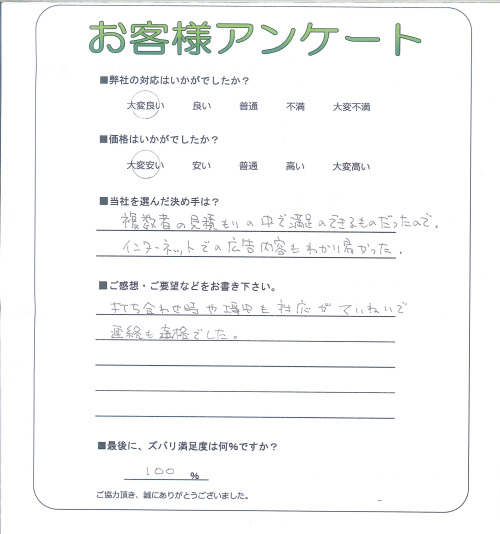 お客様アンケート
■弊社の対応はいかがでしたか？
大変良い 良い 普通 不満 大変不満
■価格はいかがでしたか？
大変安い 安い 普通 高い 大変高い
■当社を選んだ決め手は？
複数者の見積もりの中で満足のできるものだったので、
インターネットでの広告内容もわかり易かった。
■ご感想・ご要望などをお書き下さい。
打ち合わせ時や工事中も対応がていねいで
連絡も適格でした。
■最後に、ズバリ満足度は何%ですか？
100 %
ご協力頂き、誠にありがとうございました。